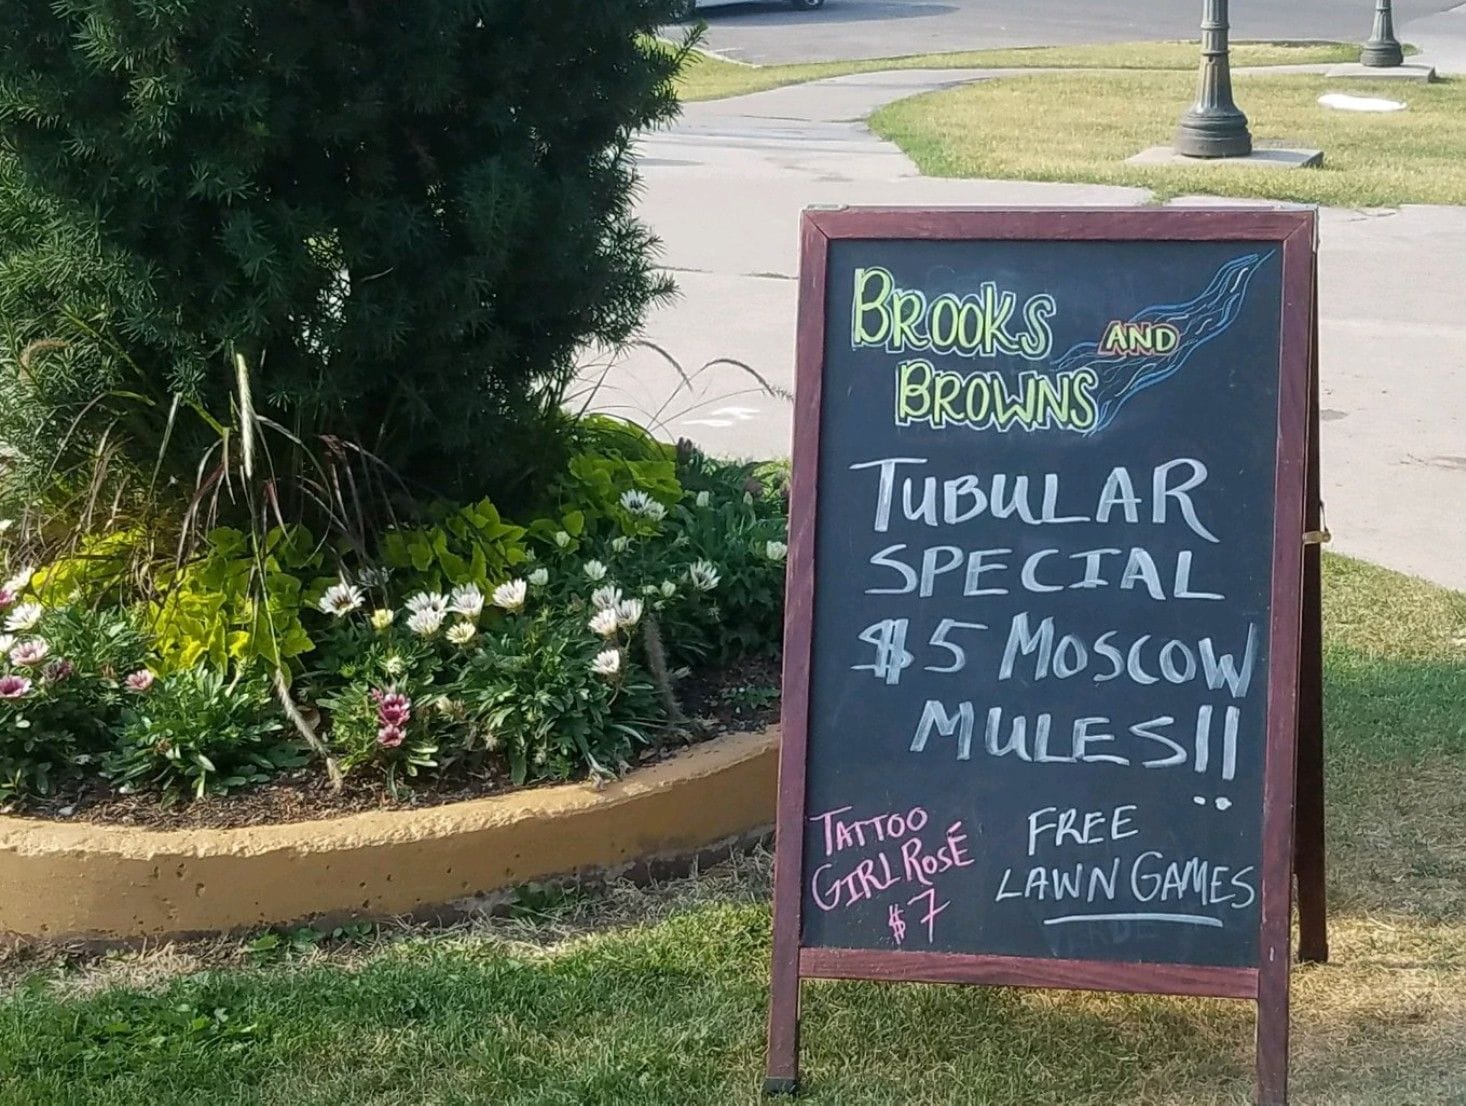 BROOKS AND
BROWNS
TUBULAR
SPECIAL
$5 MOSCOW
MULES!!
TATTOO
GIRL ROSÉ
$7
FREE
LAWN GAMES